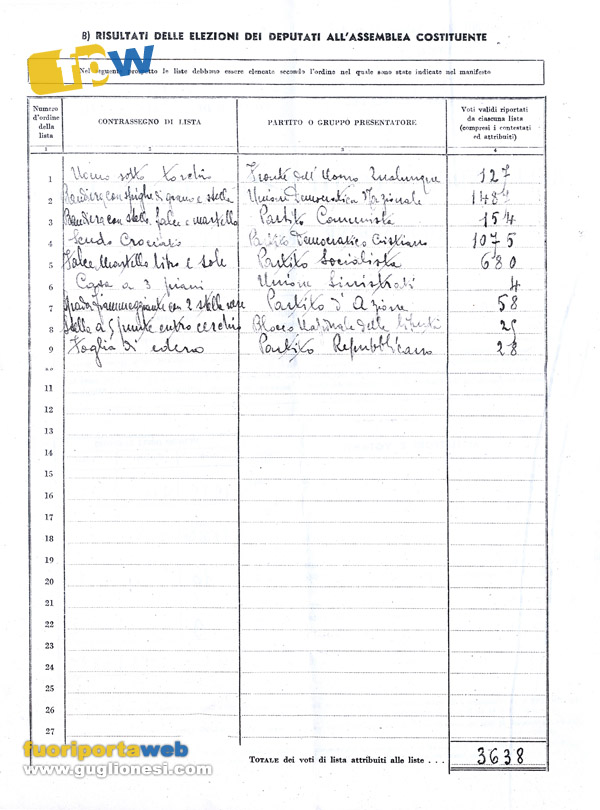 fpw
B) RISULTATI DELLE ELEZIONI DEI DEPUTATI ALL'ASSEMBLEA COSTITUENTE
Nel seguente prospetto le liste debbono essere elencate secondo l'ordine nel quale sono state indicate nel manifesto
Numero d'ordine della lista
CONTRASSEGNO DI LISTA
PARTITO O GRUPPO PRESENTATORE
Voti validi riportati da ciascuna lista (compresi i contestati ed attribuiti)
1 2 3 4
1 Uomo sotto torchio Fronte dell'Uomo Qualunque 127
2 Bandiera con spighe di grano e stella Unione Democratica Nazionale 1487
3 Bandiera con stella falce e martello Partito Comunista 154
4 Scudo Crociato Partito Democratico Cristiano 1075
5 Falce Martello libro e sole Partito Socialista 680
6 Casa a 3 piani Unione Sinistrati 4
7 Spada fiammeggiante con 2 stelle Partito d'Azione 58
8 Stella a 5 punte entro cerchio Blocco Nazionale della libertà 25
9 Foglia di edera Partito Repubblicano 28
11
12
13
14
15
16
17
18
19
20
21
22
23
24
25
26
27
TOTALE dei voti di lista attribuiti alle liste . . . 3638
fuoriportaweb
www.guglionesi.com